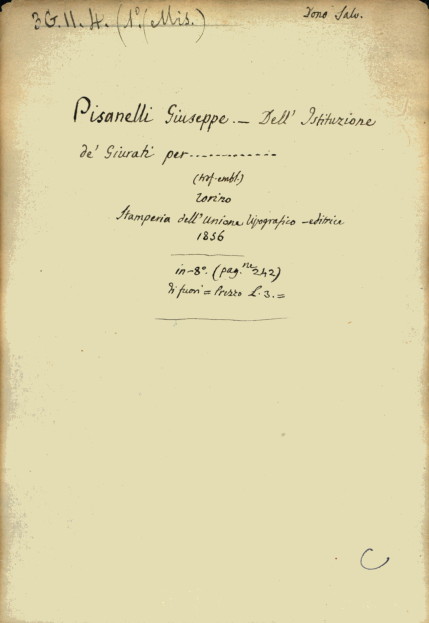 3G.11.4. (1º (Mis.)
Dono Salv.
Pisanelli Giuseppe. — Dell' Istituzione
de' Giurati per------------
(tip.-embl.)
Torino
Stamperia dell' Unione tipografico-editrice
1856
in-8º. (pag.ne 242)
di fuori = Prezzo L. 3. =
C